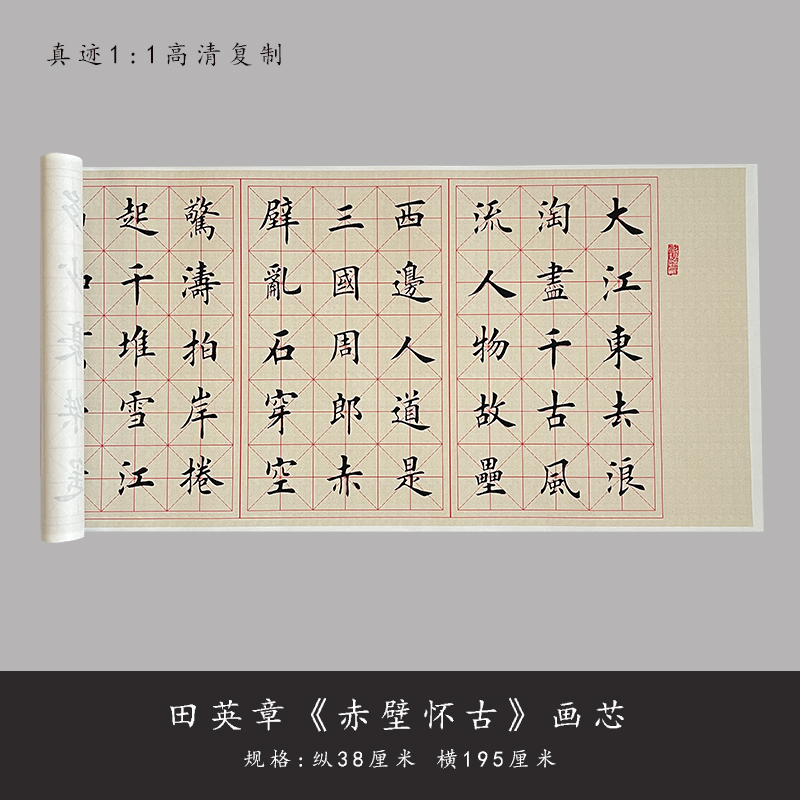 真迹1:1高清复制
大江東去浪
淘盡千古風
流人物故壘
西邊人道是
三國周郎赤
壁亂石穿空
驚濤拍岸捲
起千堆雪江
多少豪傑遥
田英章《赤壁怀古》画芯
规格:纵38厘米 横195厘米